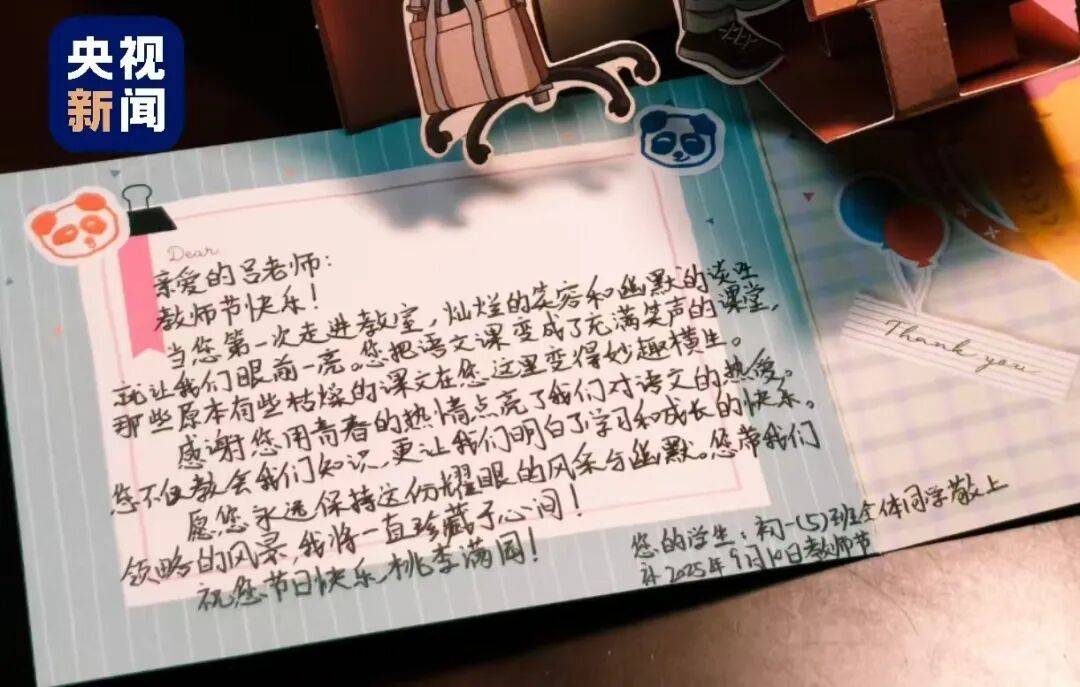 央视
新闻
Dear
亲爱的吕老师:
教师节快乐!
当您第一次走进教室,灿烂的笑容和幽默的谈吐
就让我们眼前一亮。您把语文课变成了充满笑声的课堂,
那些原本有些枯燥的课文在您这里变得妙趣横生。
感谢您用青春的热情点亮了我们对语文的热爱。
您不但教会我们知识,更让我们明白了学习和成长的快乐。
愿您永远保持这份耀眼的风采与幽默。您带我们
领略的风景,我将一直珍藏于心间!
祝您节日快乐,桃李满园!
您的学生:初一(5)班全体同学敬上
于2025年9月10日教师节
Thank you